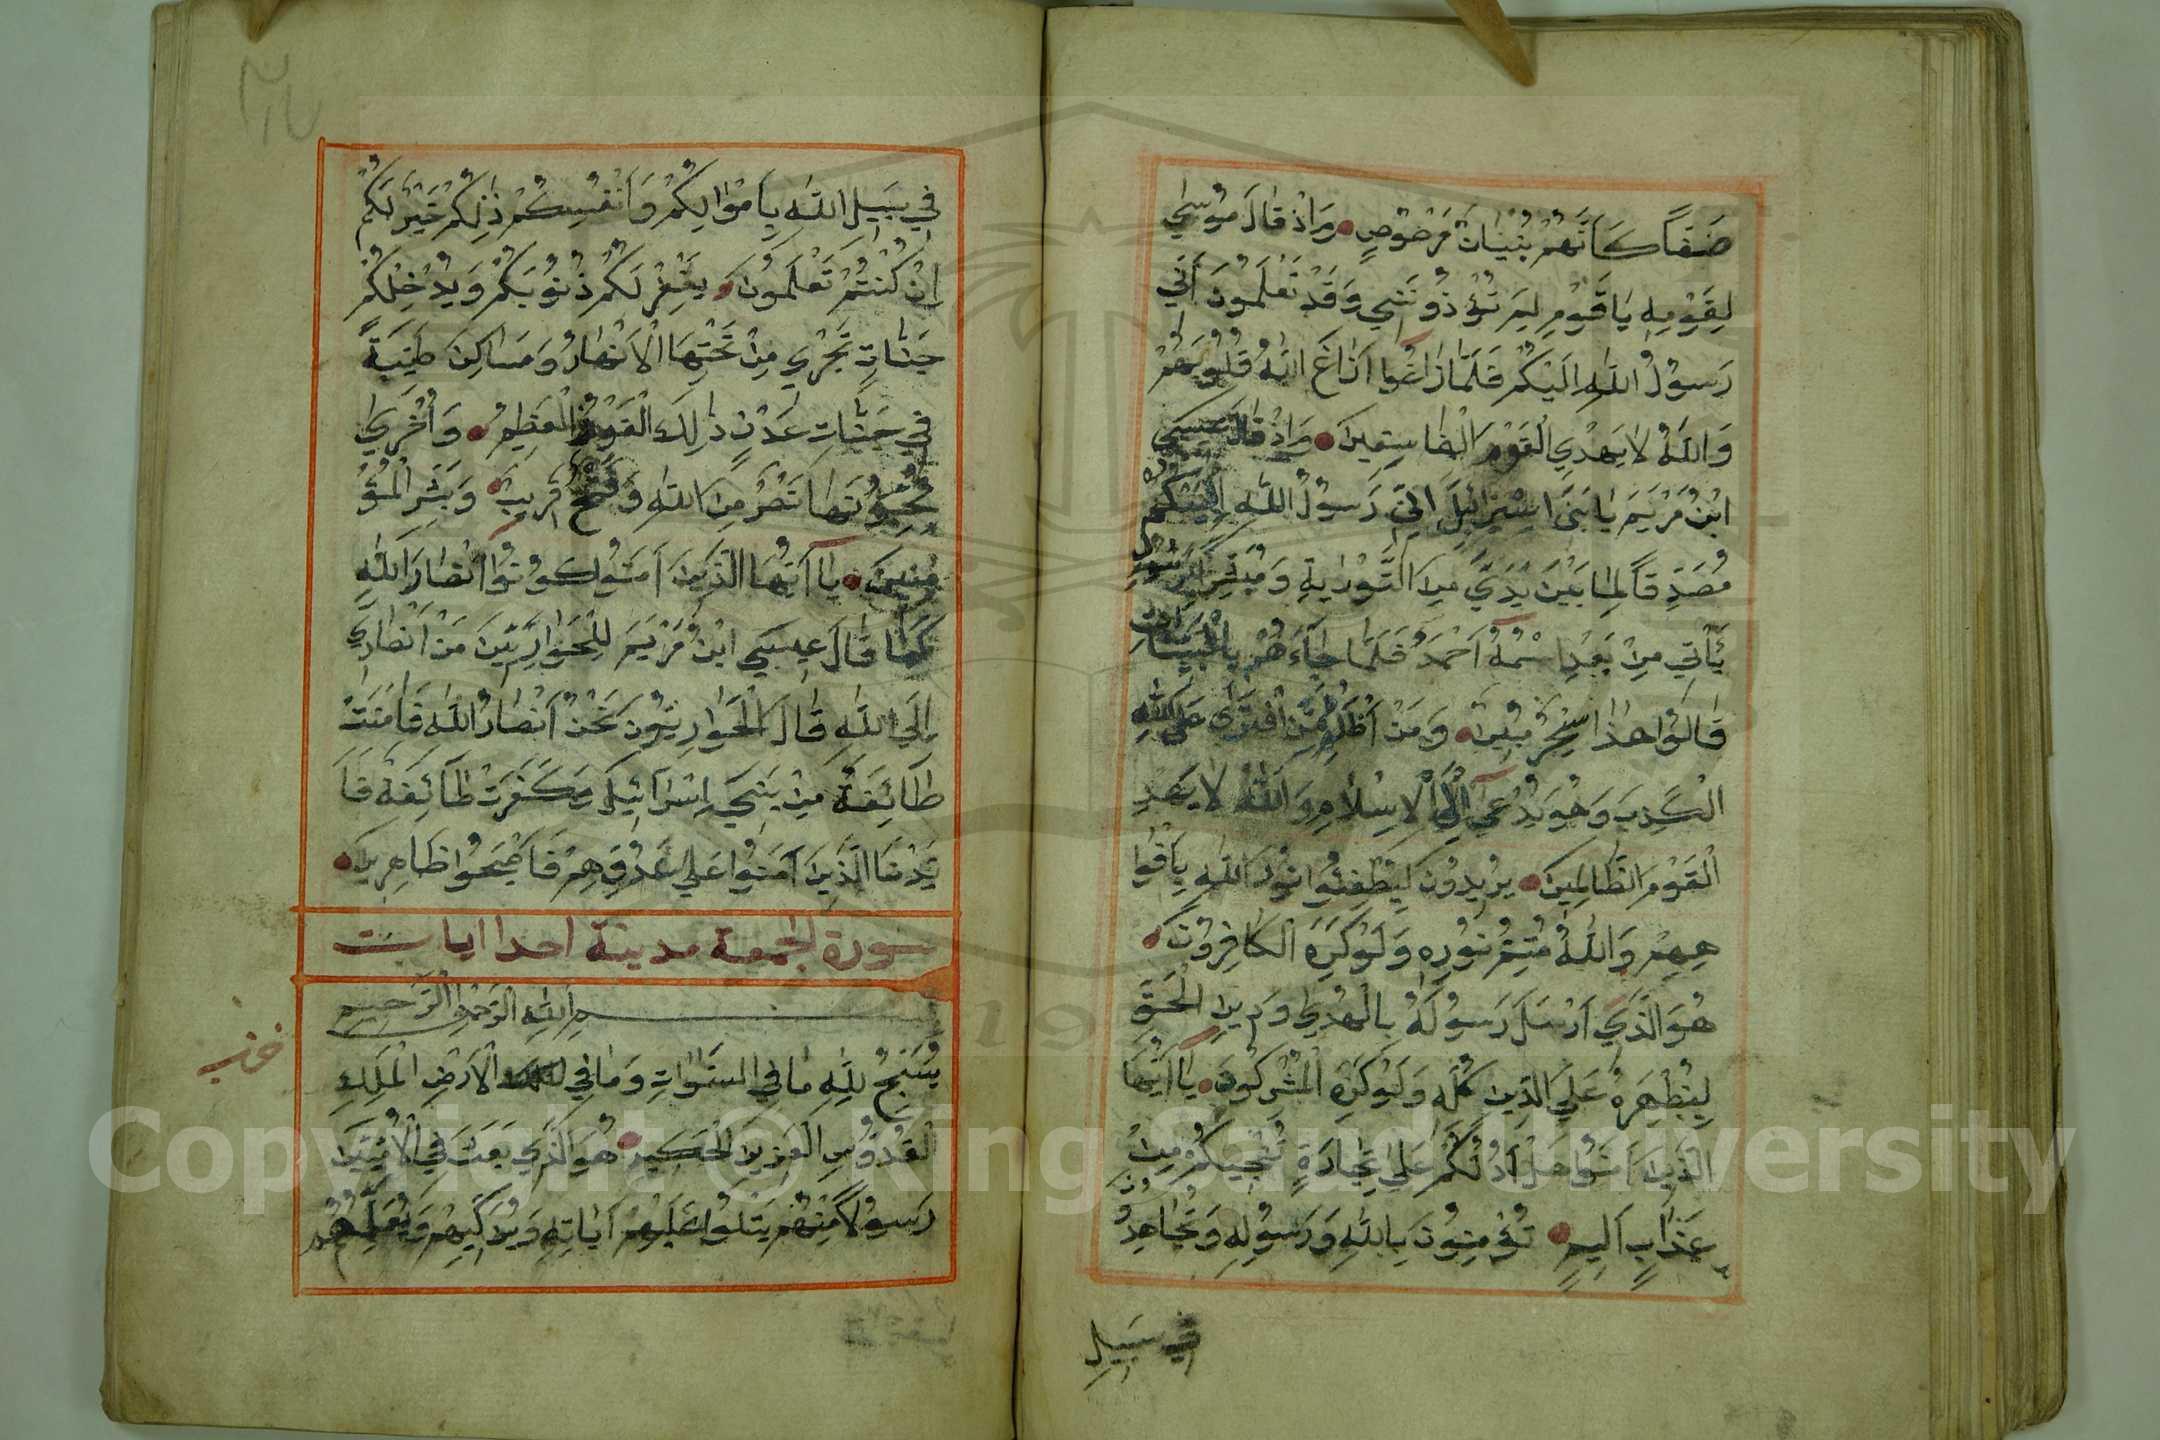 صَفًّا كَاَنَّهُمْ بُنْيَانٌ مَرْصُوْصٍ وَاِذْ قَالَ مُوْسٰي
لِقَوْمِهِ يَا قَوْمِ لِمَ تُؤْذُونَنِي وَقَدْ تَعْلَمُونَ اَنِّي
رَسُوْلُ اللّٰهِ اِلَيْكُمْ فَلَمَّا زَاغُوا اَزَاغَ اللّٰهُ قُلُوْبَهُمْ
وَاللّٰهُ لَا يَهْدِي الْقَوْمَ الْفَاسِقِينَ وَاِذْ قَالَ عِيسَي
ابْنُ مَرْيَمَ يَا بَنِي اِسْرَائِيْلَ اِنِّي رَسُوْلُ اللّٰهِ اِلَيْكُمْ
مُصَدِّقًا لِمَا بَيْنَ يَدَيَّ مِنَ التَّوْرٰيةِ وَمُبَشِّرًا بِرَسُوْلٍ
يَأْتِي مِنْ بَعْدِ اسْمُهُ اَحْمَدُ فَلَمَّا جَآءَهُمْ بِالْبَيِّنَاتِ
قَالُوا هٰذَا سِحْرٌ مُبِينٌ وَمَنْ اَظْلَمُ مِمَّنِ افْتَرٰي عَلَي اللّٰهِ
الْكَذِبَ وَهُوَ يُدْعٰي اِلَي الْاِسْلَامِ وَاللّٰهُ لَا يَهْدِ
الْقَوْمَ الظَّالِمِينَ يُرِيْدُوْنَ لِيُطْفِئُوا نُوْرَ اللّٰهِ بِاَفْوَا
هِهِمْ وَاللّٰهُ مُتِمُّ نُوْرِهِ وَلَوْ كَرِهَ الْكَافِرُوْنَ
هُوَ الَّذِي اَرْسَلَ رَسُوْلَهُ بِالْهُدٰي وَدِينِ الْحَقِّ
لِيُظْهِرَهُ عَلَي الدِّينِ كُلِّهِ وَلَوْ كَرِهَ الْمُشْرِكُوْنَ يَا اَيُّهَا
الَّذِينَ اٰمَنُوا هَلْ اَدُلُّكُمْ عَلٰي تِجَارَةٍ تُنْجِيكُمْ مِنْ
عَذَابٍ اَلِيمٍ تُؤْمِنُوْنَ بِاللّٰهِ وَرَسُوْلِهِ وَتُجَاهِدُونَ
في سبيل
في سَبِيلِ اللّٰهِ بِاَمْوَالِكُمْ وَاَنْفُسِكُمْ ذٰلِكُمْ خَيْرٌ لَكُمْ
اِنْ كُنْتُمْ تَعْلَمُونَ يَغْفِرْ لَكُمْ ذُنُوْبَكُمْ وَيُدْخِلْكُمْ
جَنَّاتٍ تَجْرِي مِنْ تَحْتِهَا الْاَنْهَارُ وَمَسَاكِنَ طَيِّبَةً
في جَنَّاتِ عَدْنٍ ذٰلِكَ الْفَوْزُ الْعَظِيمُ وَاُخْرٰي
تُحِبُّوْنَهَا نَصْرٌ مِنَ اللّٰهِ وَفَتْحٌ قَرِيبٌ وَبَشِّرِ الْمُؤْ
مِنِينَ يَا اَيُّهَا الَّذِينَ اٰمَنُوا كُوْنُوا اَنْصَارَ اللّٰهِ
كَمَا قَالَ عِيسَي ابْنُ مَرْيَمَ لِلْحَوَارِيِّينَ مَنْ اَنْصَارِي
اِلَي اللّٰهِ قَالَ الْحَوَارِيُّوْنَ نَحْنُ اَنْصَارُ اللّٰهِ فَاٰمَنَتْ
طَائِفَةٌ مِنْ بَنِي اِسْرَائِيلَ وَكَفَرَتْ طَائِفَةٌ فَاَ
يَّدْنَا الَّذِينَ اٰمَنُوا عَلٰي عَدُوِّهِمْ فَاَصْبَحُوا ظَاهِرِينَ
سورة الجمعة مدينة احدا ايات
بسم اللّٰه الرّحمن الرّحيم
يُسَبِّحُ لِلّٰهِ مَا فِي السَّمٰوَاتِ وَمَا فِي الْاَرْضِ الْمَلِكِ
حزب
الْقُدُّوْسِ الْعَزِيزِ الْحَكِيمِ هُوَ الَّذِي بَعَثَ فِي الْاُمِّيِّينَ
رَسُوْلًا مِنْهُمْ يَتْلُوا عَلَيْهِمْ اٰيَاتِهِ وَيُزَكِّيهِمْ وَيُعَلِّمُهُمُ
Copyright © King Saud University